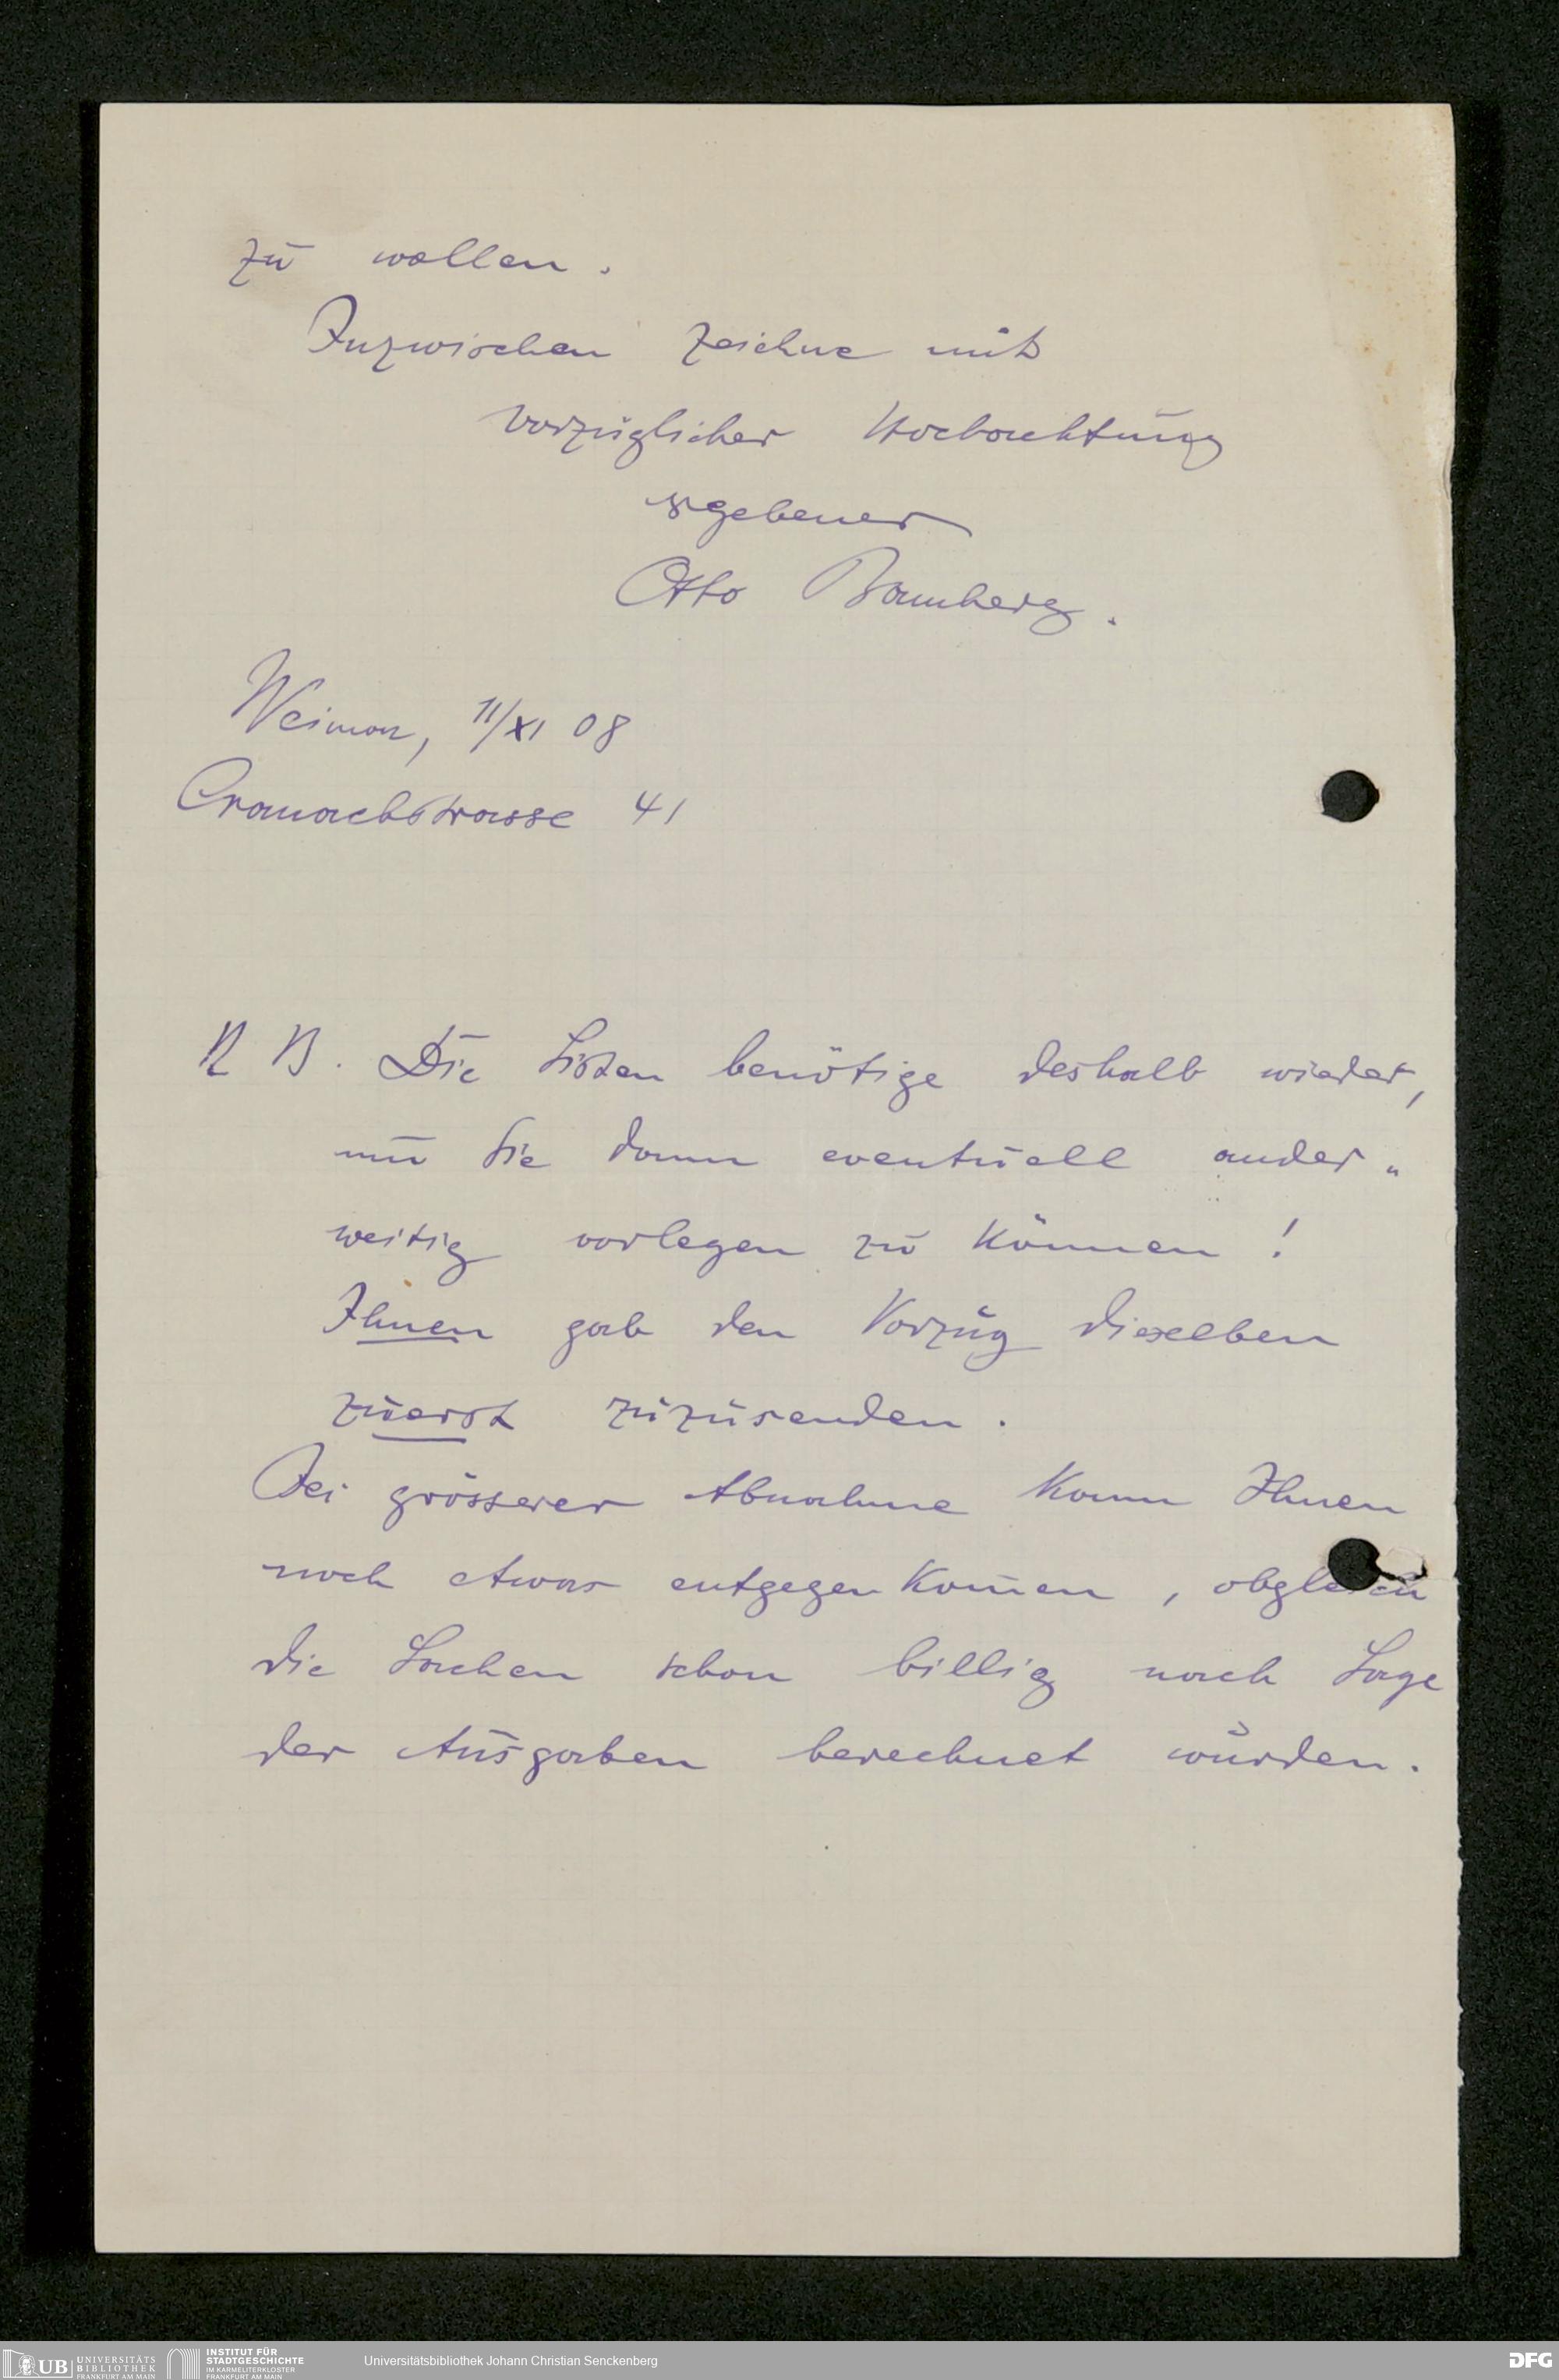 zu wollen.
Inzwischen zeichne mit
vorzüglicher Hochachtung
ergebener
Otto Bamberg.
Weimar, 11/XI 08
Cranachstrasse 41
N B. Die Listen benötige deshalb wieder,
um sie dann eventuell ander„
weitig vorlegen zu können!
Ihnen gab den Vorzug dieselben
zuerst zuzusenden.
Bei grösserer Abnahme kann Ihnen
noch etwas entgegen kom̄en, obgleich
die Sachen schon billig nach Lage
der Ausgaben berechnet wurden.
UB UNIVERSITÄTS
BIBLIOTHEK
FRANKFURT AM MAIN
INSTITUT FÜR
STADTGESCHICHTE
IM KARMELITERKLOSTER
FRANKFURT AM MAIN
Universitätsbibliothek Johann Christian Senckenberg
DFG